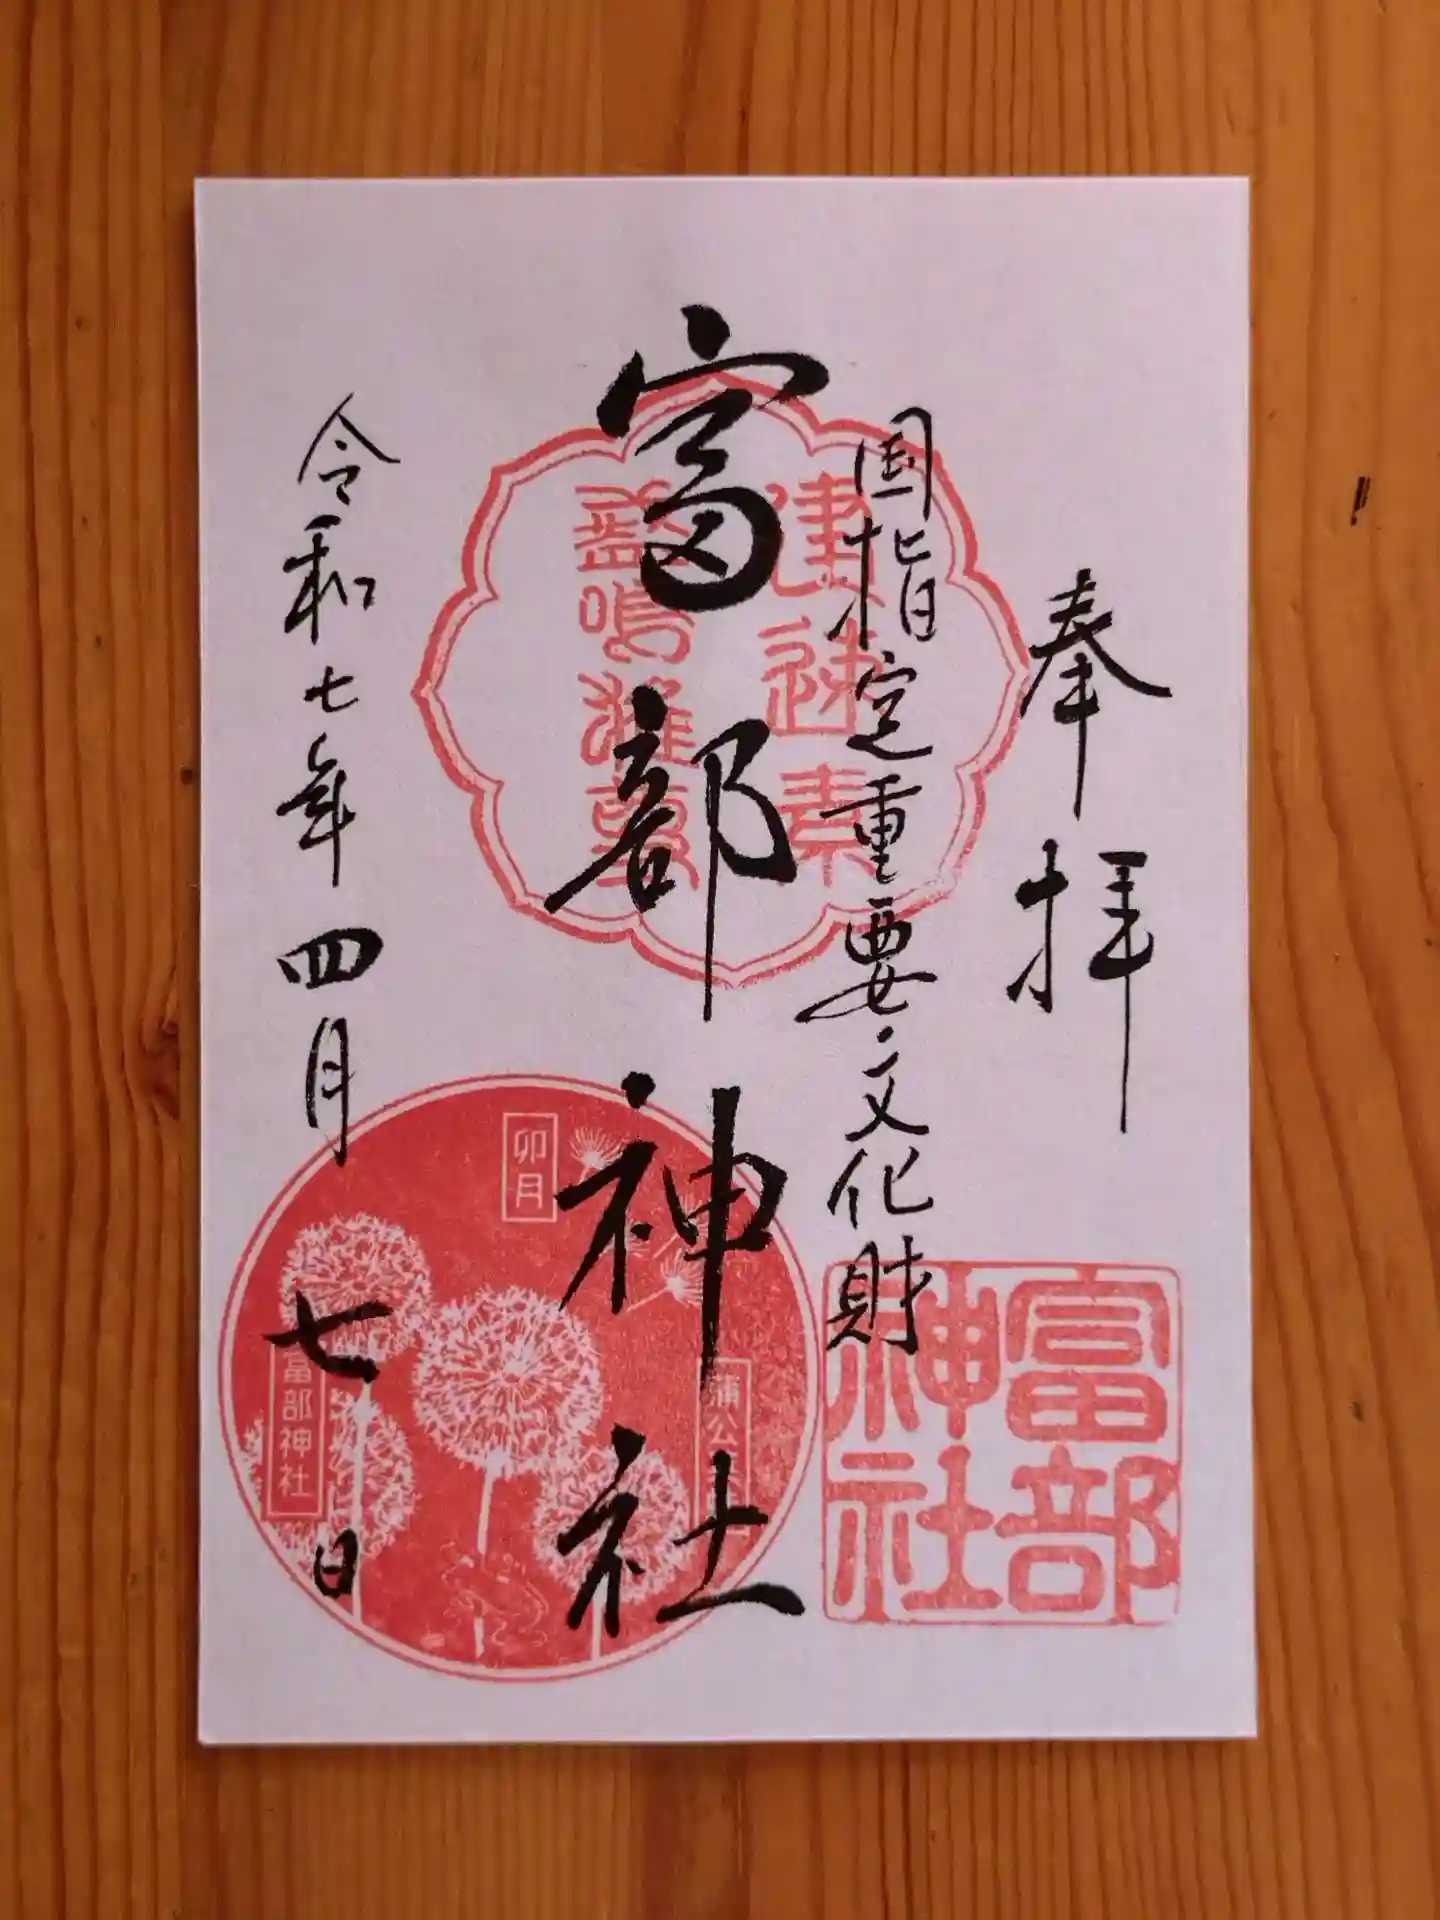 奉拝
国指定重要文化財
富部神社
令和七年四月七日
建速素
盞嗚雄尊
富部
神社
卯月
蒲公
富部神社